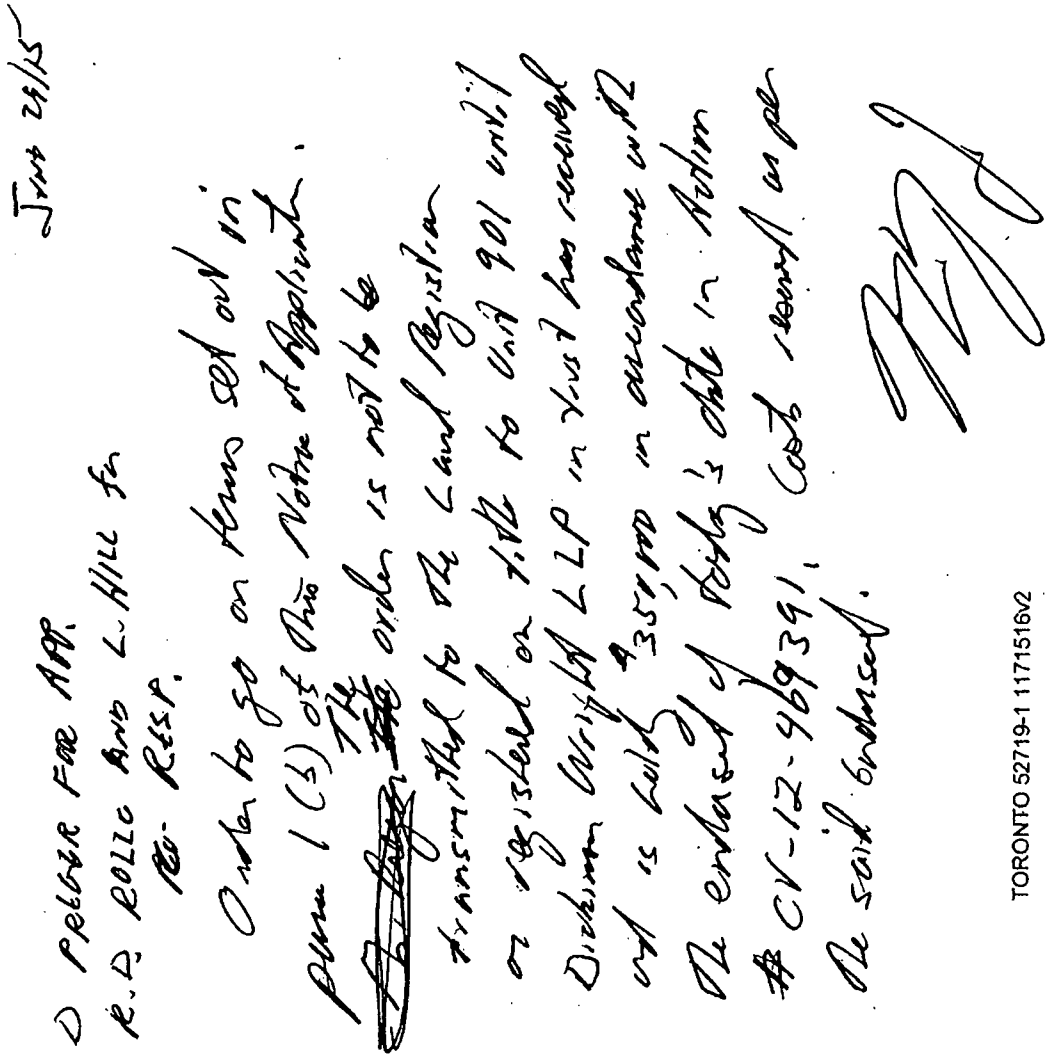 June 29/15
D PREGER FOR APP.
R.D. ROLLO AND L. HILL for
Resp.
Order to go on terms set out in
para 1 (b) of this Notice of Application.
The order is not to be
transmitted to the Land Registrar
or registered on title to Unit 901 until
Dickinson Wright LLP in trust has received
and is holding $350,000 in accordance with
the endorsement of today's date in Action
# CV-12-469391. Costs reserved as per
the said endorsement.
TORONTO 52719-1 1171516v2